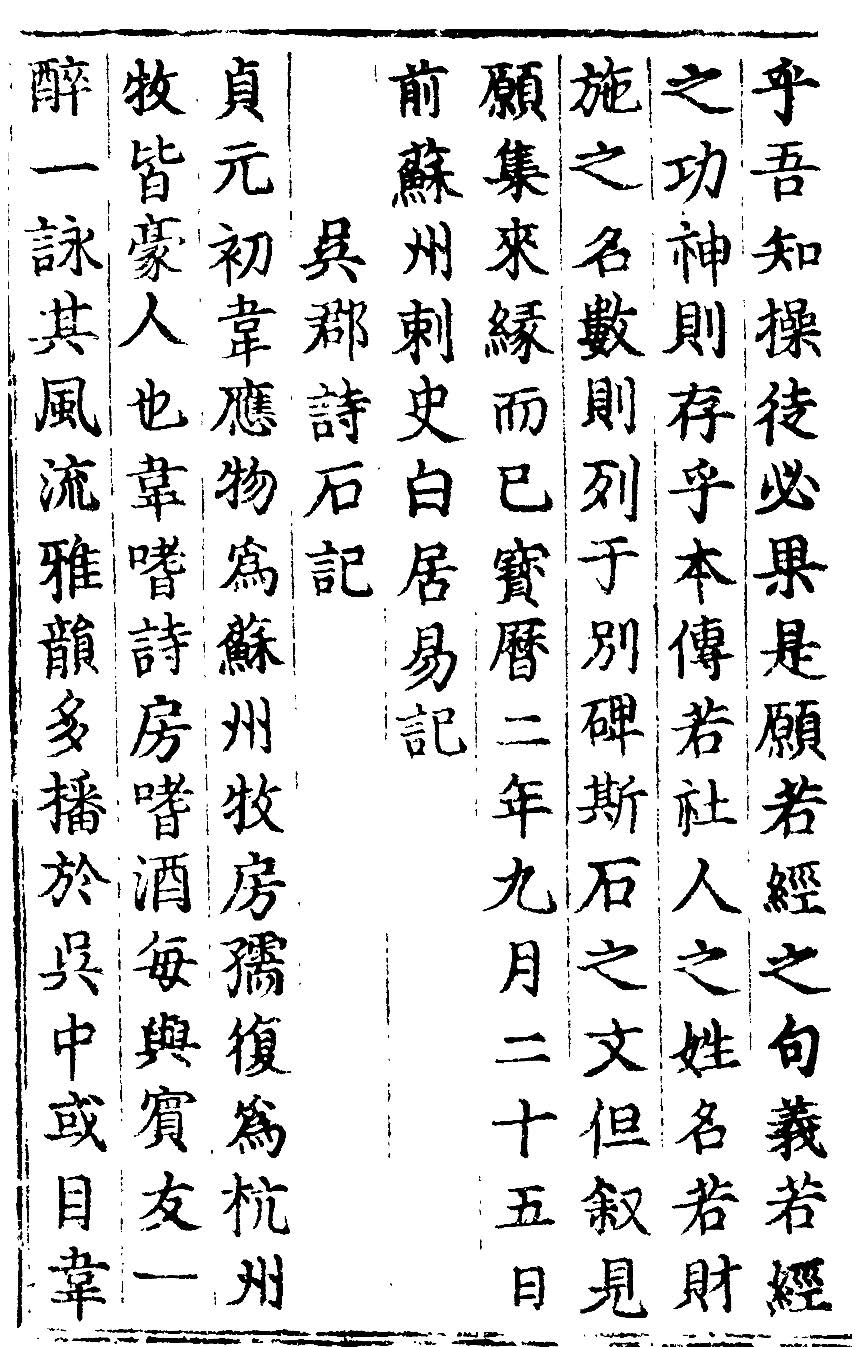 乎吾知操徒必果是願若經之句義若經
之功神則存乎本傳若社人之姓名若財
施之名數則列于別碑斯石之文但叙見
願集來緣而已寶曆二年九月二十五日
前蘇州刺史白居易記
吳郡詩石記
貞元初韋應物爲蘇州牧房孺復爲杭州
牧皆豪人也韋嗜詩房嗜酒每與賓友一
醉一詠其風流雅韻多播於吳中或目韋